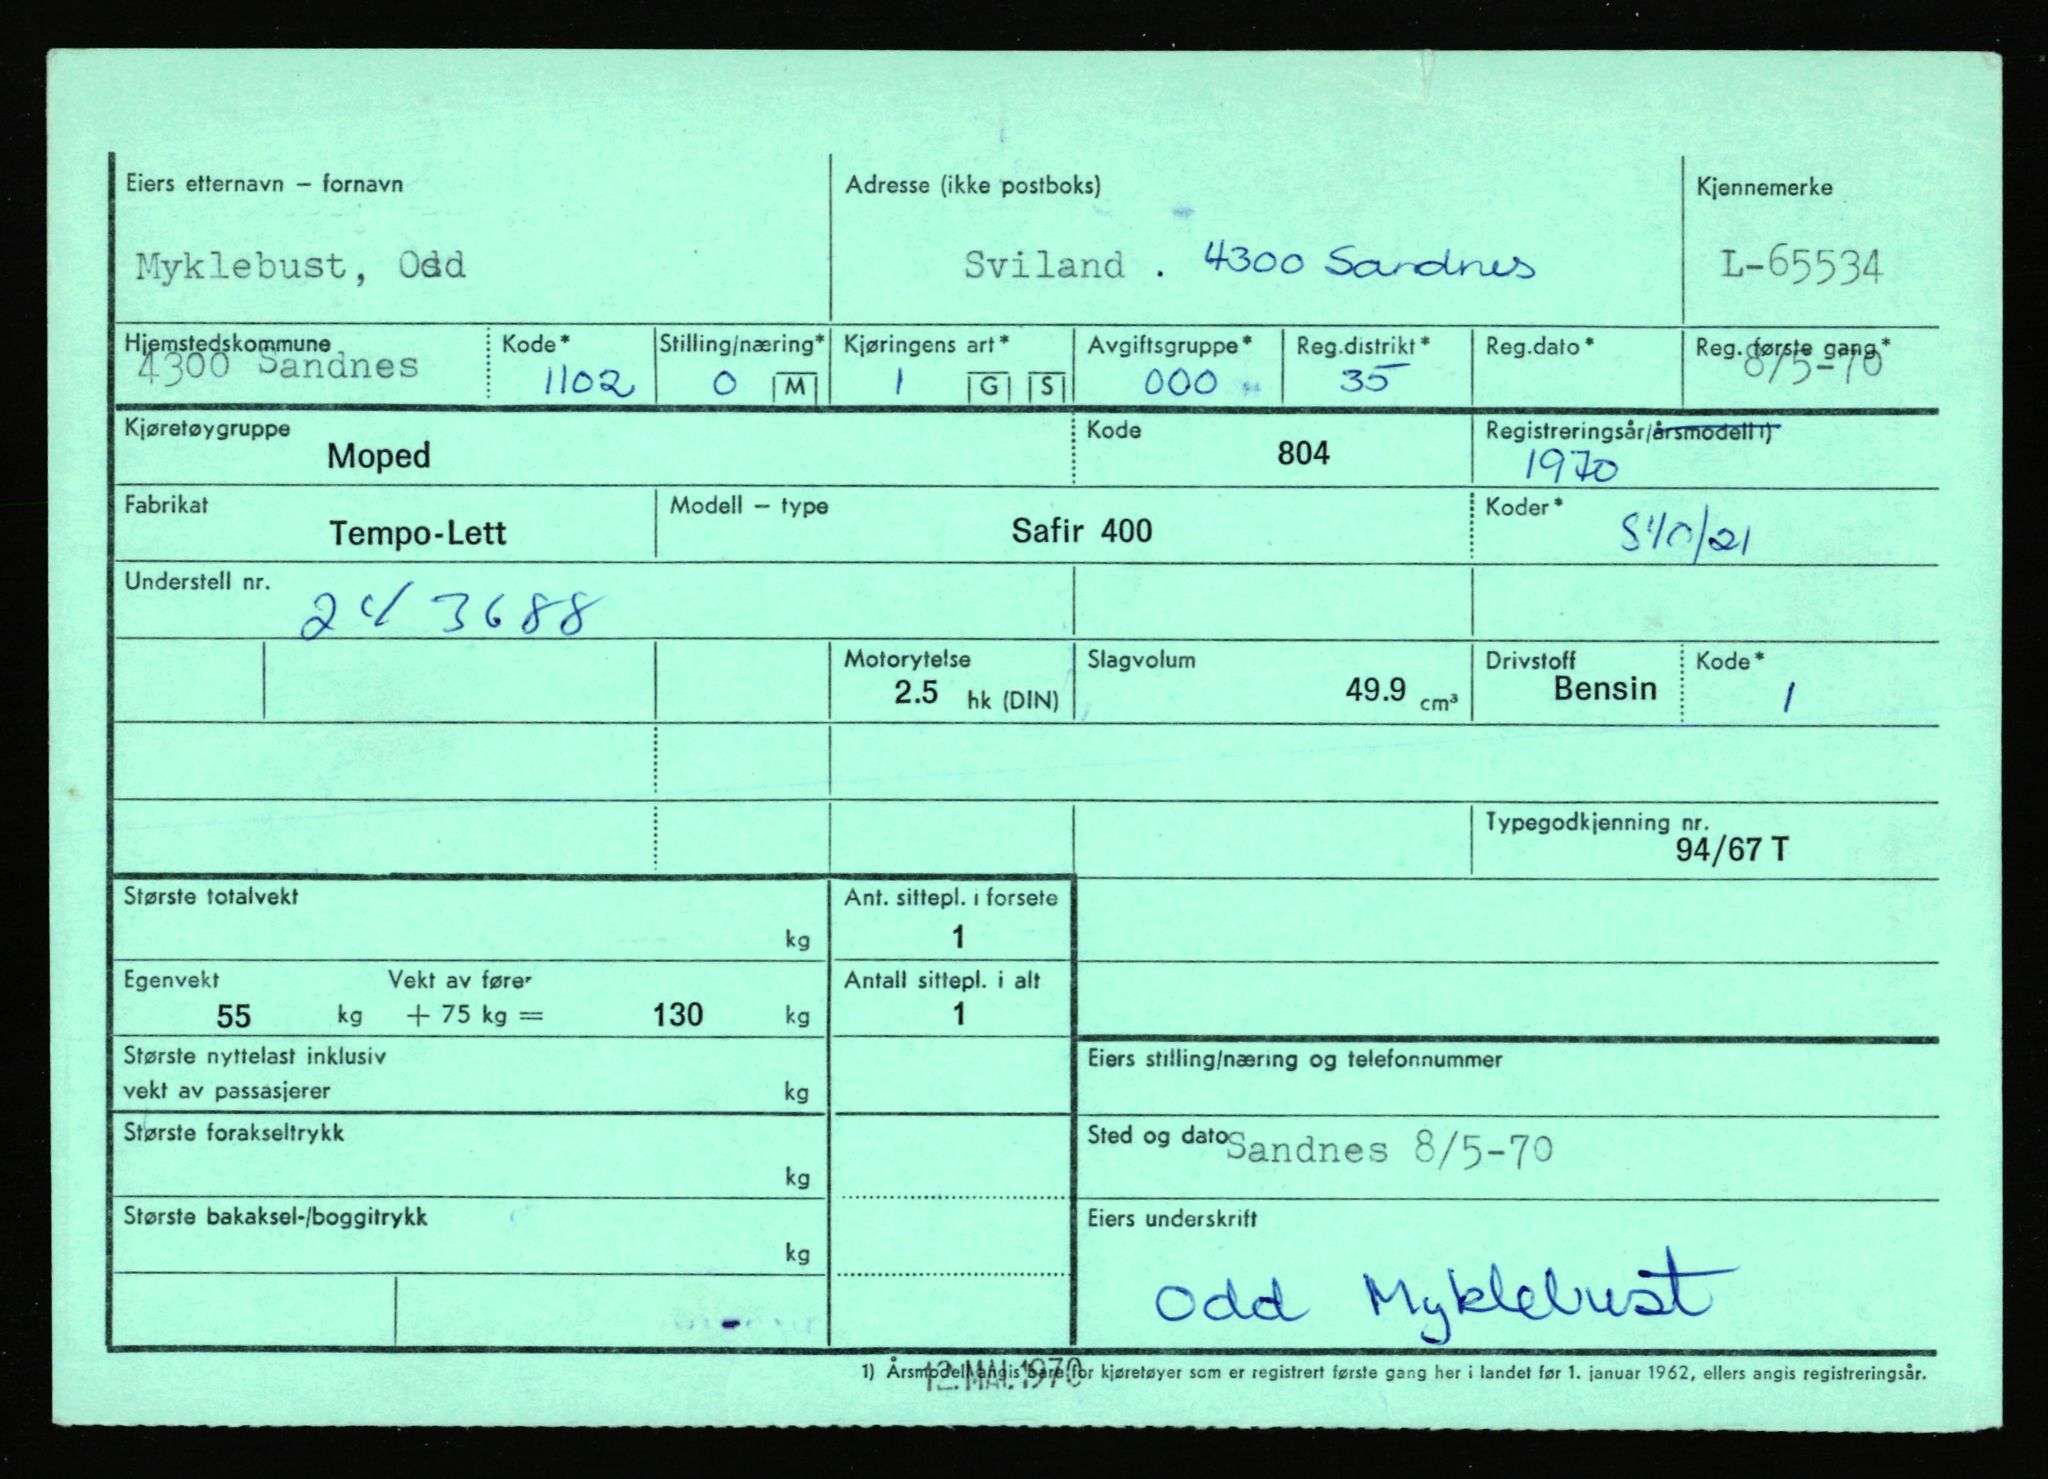 Eiers etternavn – fornavn Adresse (ikke postboks) Kjennemerke
Myklebust, Odd Sviland . 4300 Sandnes L-65534
Hjemstedskommune Kode* Stilling/næring* Kjøringens art* Avgiftsgruppe* Reg.distrikt* Reg.dato* Reg. første gang*
4300 Sandnes 1102 0 M 1 G S 000 35 8/5-70
Kjøretøygruppe Kode Registreringsår/årsmodell 1)
Moped 804 1970
Fabrikat Modell – type Koder*
Tempo-Lett Safir 400
Understell nr.
243688
Motorytelse Slagvolum Drivstoff Kode*
2.5 hk (DIN) 49.9 cm³ Bensin 1
Typegodkjenning nr.
94/67 T
Største totalvekt Ant. sittepl. i forsete
kg 1
Egenvekt Vekt av fører Antall sittepl. i alt
55 kg + 75 kg = 130 kg 1
Største nyttelast inklusiv Eiers stilling/næring og telefonnummer
vekt av passasjerer kg
Største forakseltrykk Sted og dato Sandnes 8/5-70
kg
Største bakaksel-/boggitrykk Eiers underskrift
kg
Odd Myklebust
1) Årsmodell angis bare for kjøretøyer som er registrert første gang her i landet før 1. januar 1962, ellers angis registreringsår.
12. MAI. 1970